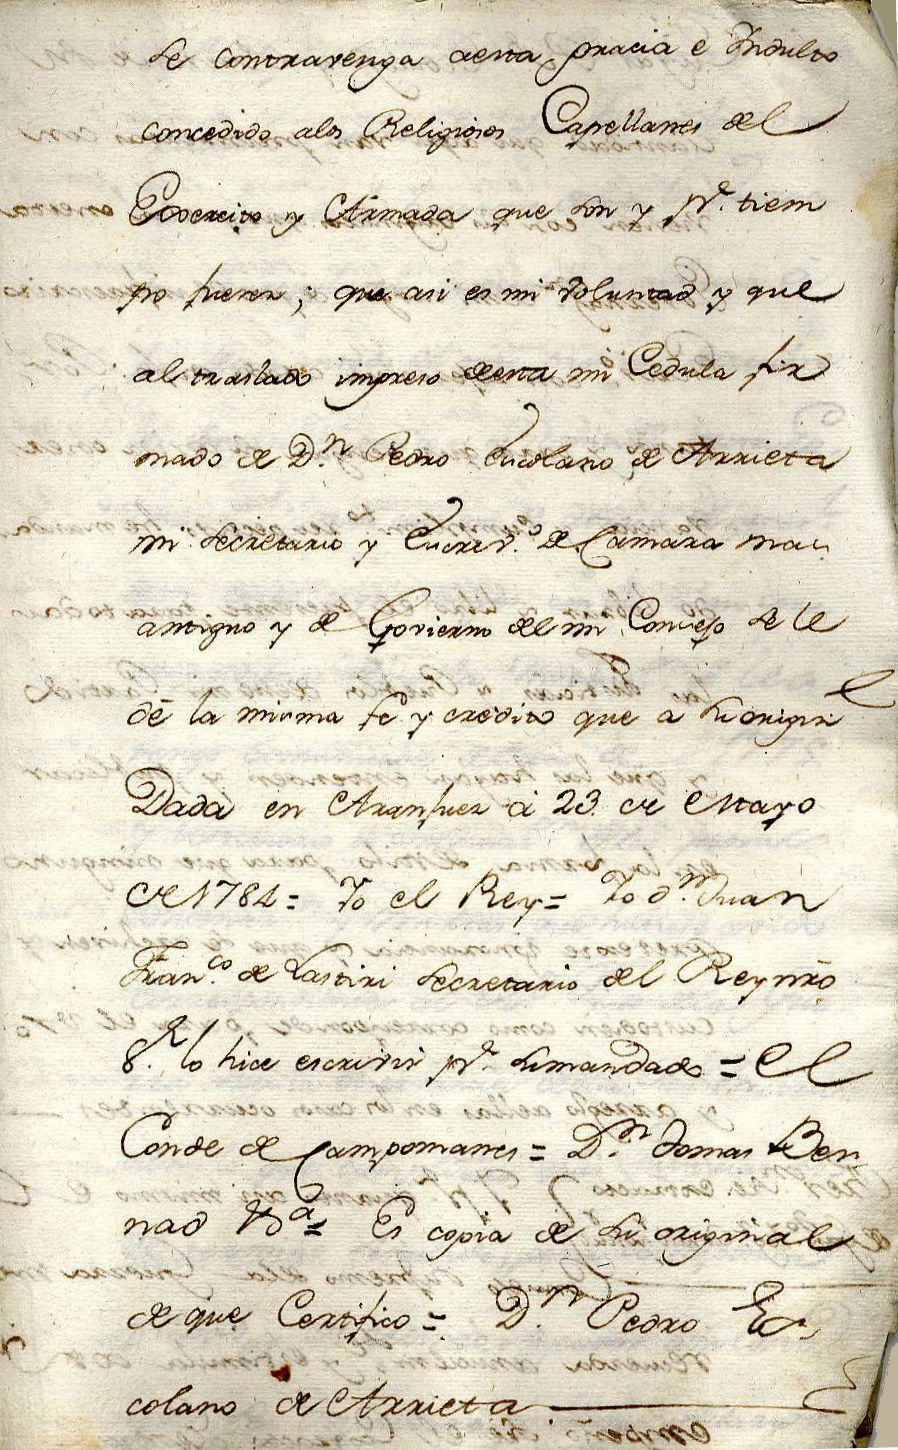 se contravenga aesta gracia e Indulto
concedido alos Religiosos Capellanes del
Exercito y Armada que son y pr. tiem
po fueren; que asi es mi voluntad y que
al traslado impreso desta mi Cedula fir
mado de Dn. Pedro Escolano de Arrieta
mi Secretario y Escrivo. de Camara mas
antiguo y de Govierno del mi Consejo se le
dé la misma fe y credito que a su original
Dada en Aranjuez á 23 de Mayo
de 1784 = Yo el Rey = Yo dn. Juan
Franco. de Lastiri Secretario del Rey nro
Sr. lo hice escrivir pr. su mandado = El
Conde de Campomanes = Dn. Tomas Ber
nad &a = Es copia de su original
de que Certifico = Dn. Pedro Es
colano de Arrieta